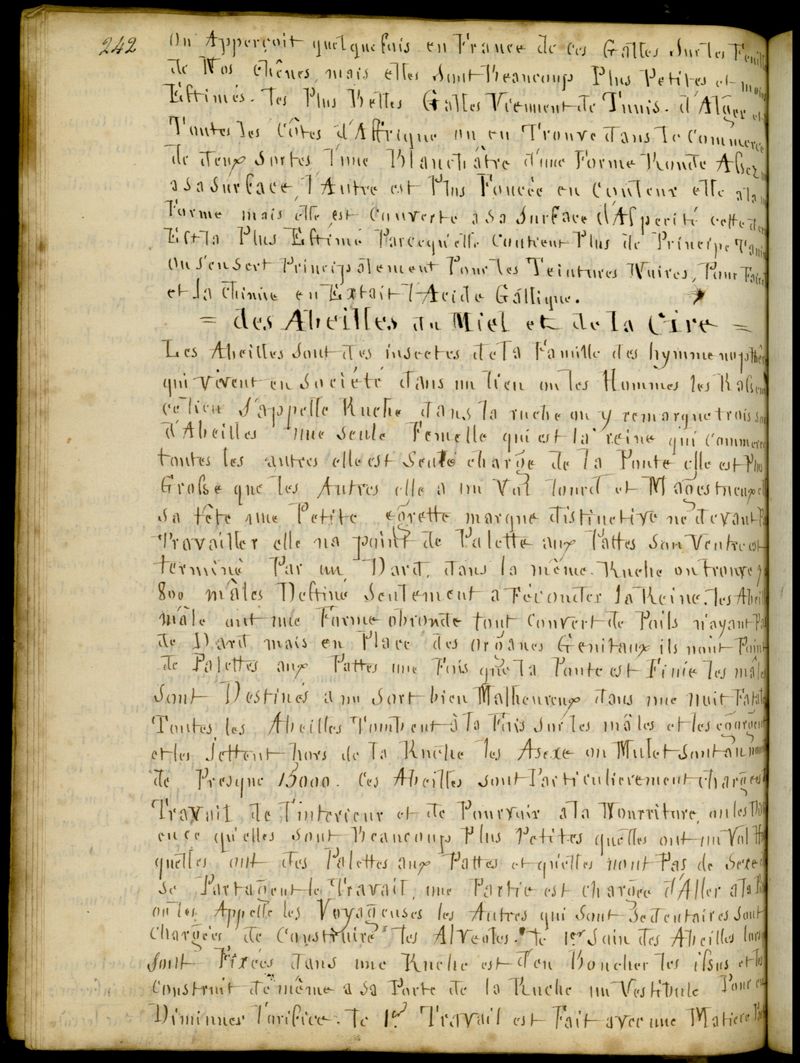 242
On Apperçoit quelquefois en France de ces Galles Sur les Feuill
de Nos chênes, mais elles Sont Beaucoup Plus Petites et moin
Estimés. Les Plus Belles Galles Viennent de Tunis. d'Alger et
Toutes les Côtes d'Affrique on en Trouve dans le Commerce
de deux Sortes l'une Blanchatre d'une Forme Ronde
a Sa Surface, l'Autre est Plus Foncée en Couleur elle a la
Forme mais elle est Couverte a Sa Surface d'Asperité cette
Est la Plus Estimé Parcequ'elle Contient Plus de Principe Tani
On s'en Sert Principalement Pour les Teintures Noires, Pour
et la chimie en Extrait l'Acide Gallique.
= des Abeilles du Miel et de la Cire =
Les Abeilles Sont des insectes de la Famille des hymmenopthe
qui Vivent en Société dans un lieu ou les Hommes les
ce lieu S'appelle Ruche dans la ruche on y remarque trois
d'Abeilles une Seule Femelle qui est la reine qui Commende
toutes les autres elle est Seule charge de la Ponte elle est Plus
Grosse que les Autres elle a un Vol lourd et Magestueux
Sa tête une Petite egrette marque distinctive ne devant
Travailler elle na point de Palette aux Pattes Son Ventre est
terminé Par un Dard, dans la même Ruche on trouve
800 mâles Destine Seulement a Féconder la Reine. les Abeill
mâle ont une Forme obronde tout Couvert de Poils n'ayant
de Dard mais en Place des organes Genitaux ils nont Point
de Palettes aux Pattes une Fois que la Ponte est Finie les mâle
Sont Destines a un Sort bien Malheureux dans une nuit Fatale
Toutes les Abeilles Tombent à la Fois Sur les mâles et les
et les Jettent hors de la Ruche les Asexe ou Mulet Sont au
de Presque 15000. Ces Abeilles Sont Particulierement charges
Travail de l'interieur et de Pourvoir a la Nourriture, on les
en ce qu'elles Sont Beaucoup Plus Petites quelles ont un Vol
quelles ont des Palettes aux Pattes et qu'elles nont Pas de Sexe
Se Partagent le Travail, une Partie est chargée d'Aller a la
on les Appelle les Voyageuses les Autres qui Sont Sedentaires Sont
Chargées de Construire les Alveoles. le 1er Soin des Abeilles
Sont Fixées dans une Ruche est d'en Boucher les
Construit de même a Sa Porte de la Ruche un Vestibule Pour
Diminuer l'orifice. le 1er Travail est Fait avec une Matiere